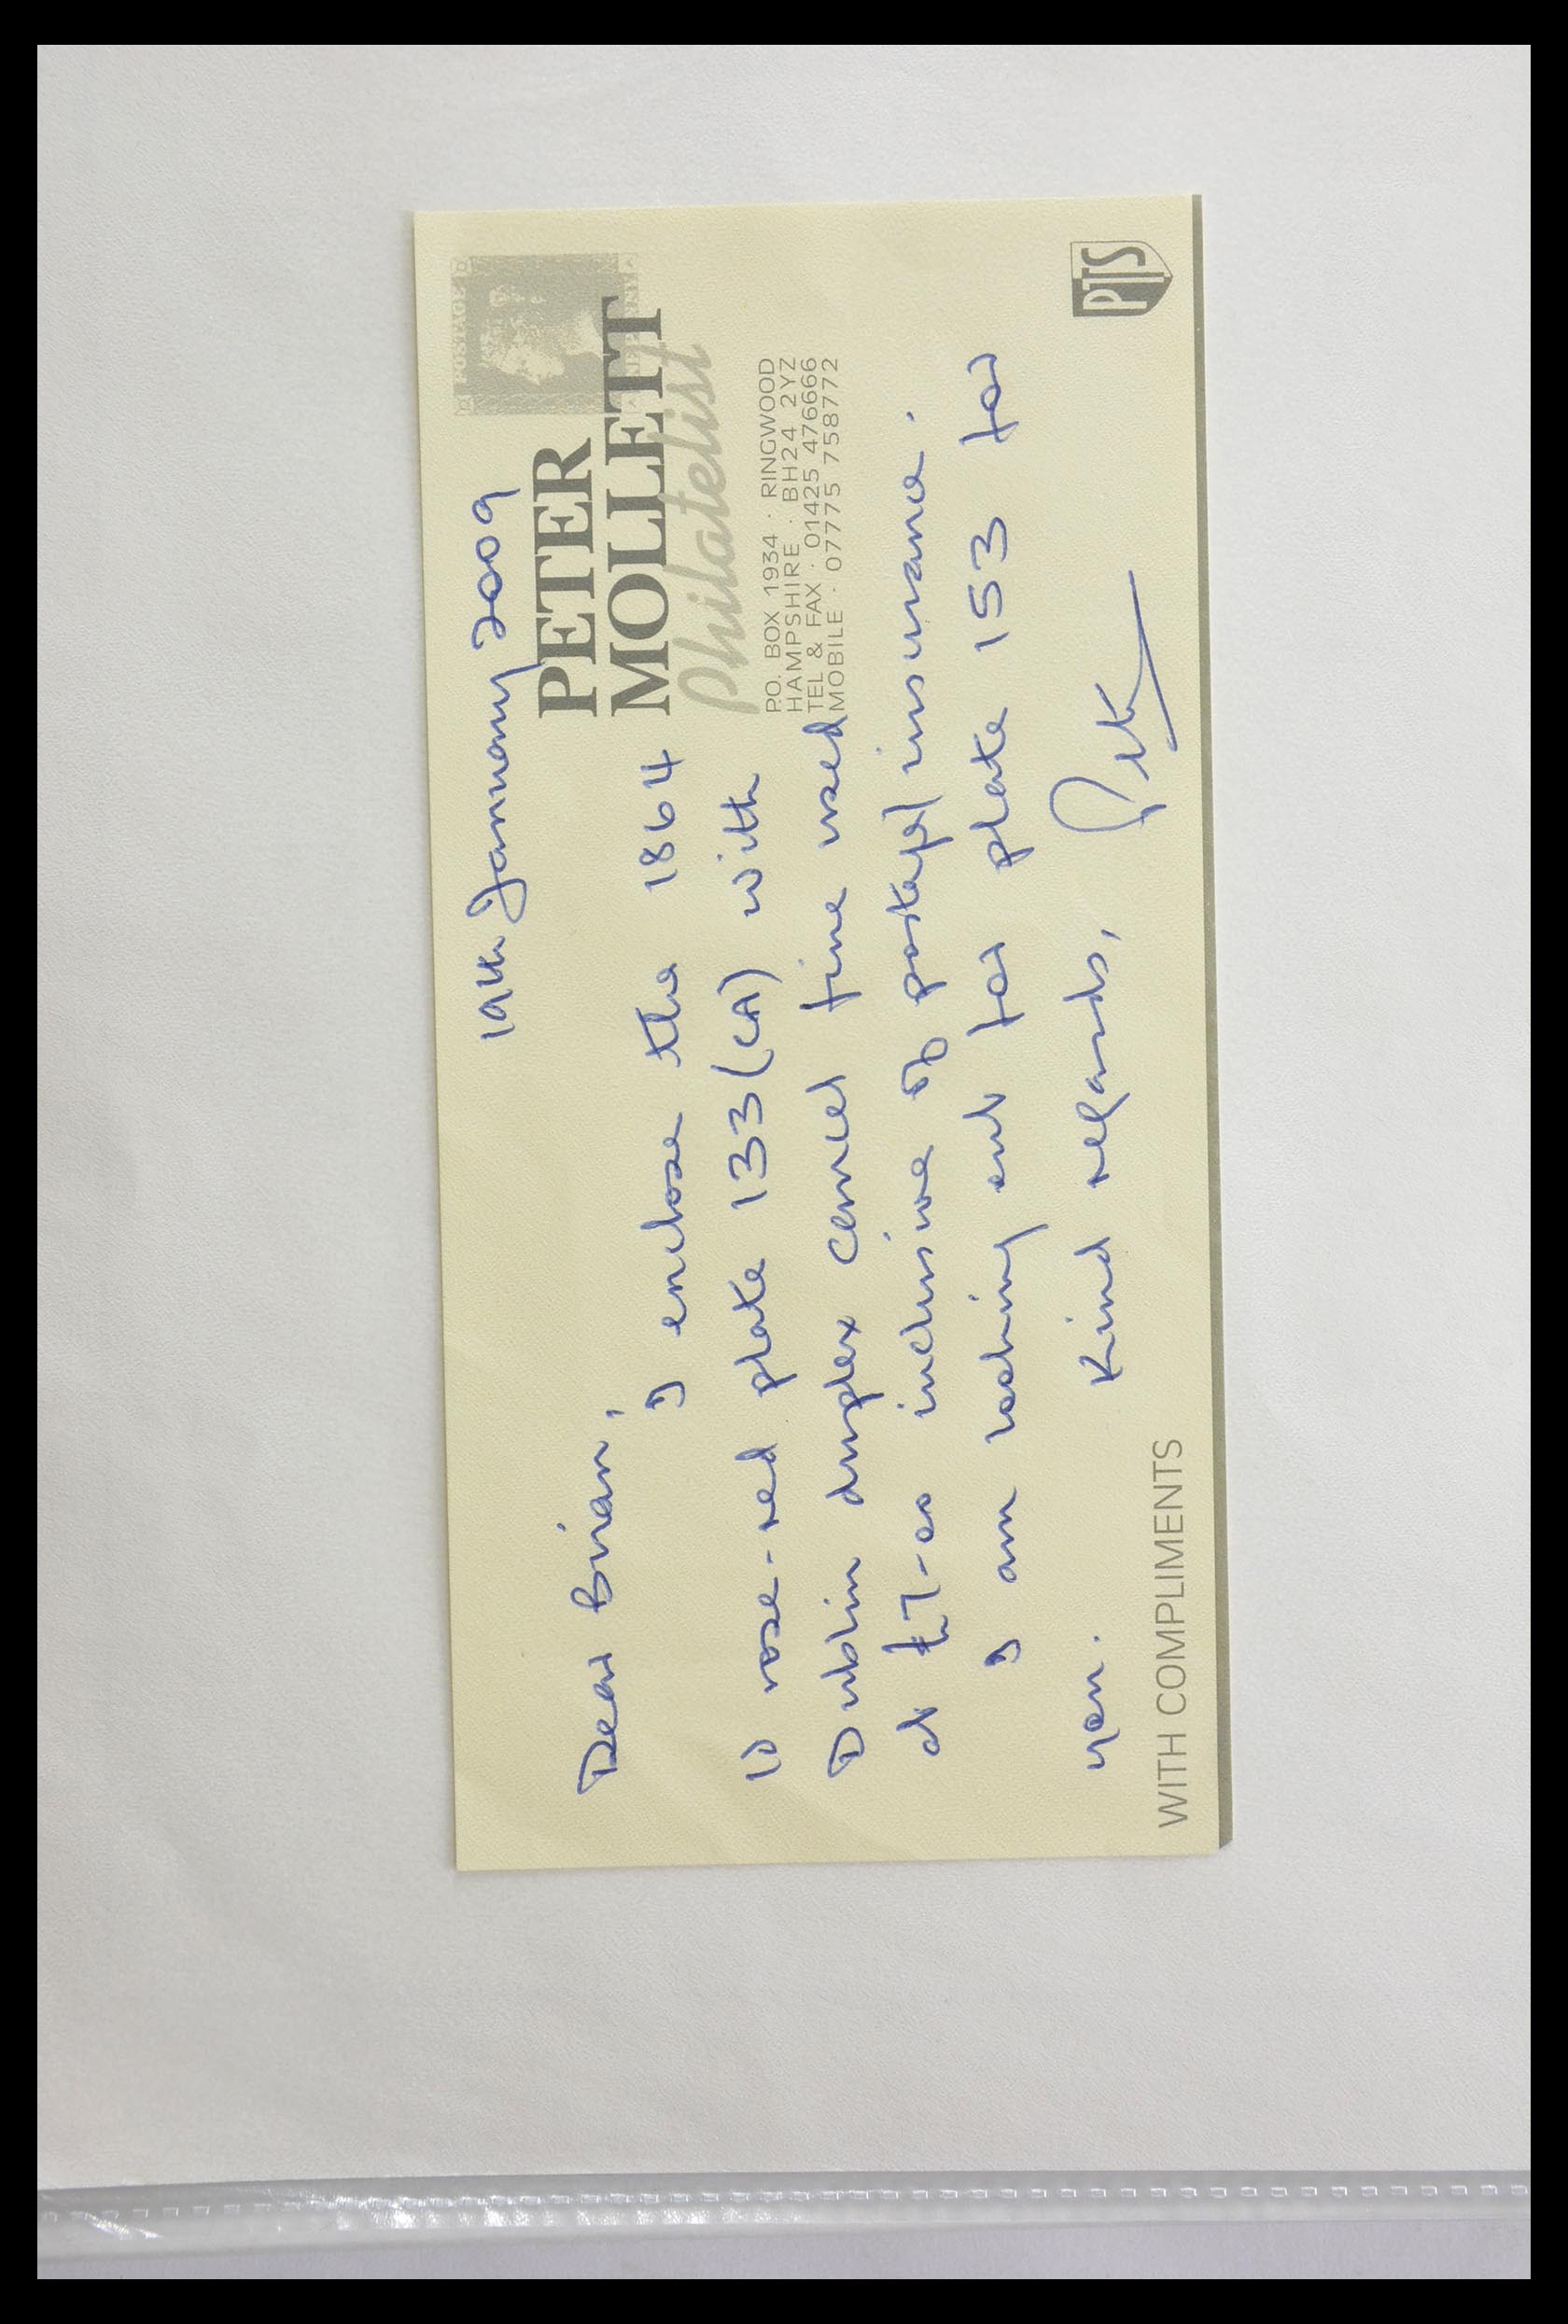 19th January 2009
PETER
MOLLETT
Philatelist
P.O. BOX 1934 · RINGWOOD
HAMPSHIRE · BH24 2YZ
TEL & FAX · 01425 476666
MOBILE · 07775 758772
Dear Brian,
I enclose the 1864
1D rose-red plate 133 (CA) with
Dublin duplex cancel fine used
at £7-00 inclusive of postage/insurance.
I am looking out for plate 153 for
you.
Kind regards,
Peter
WITH COMPLIMENTS
PTS